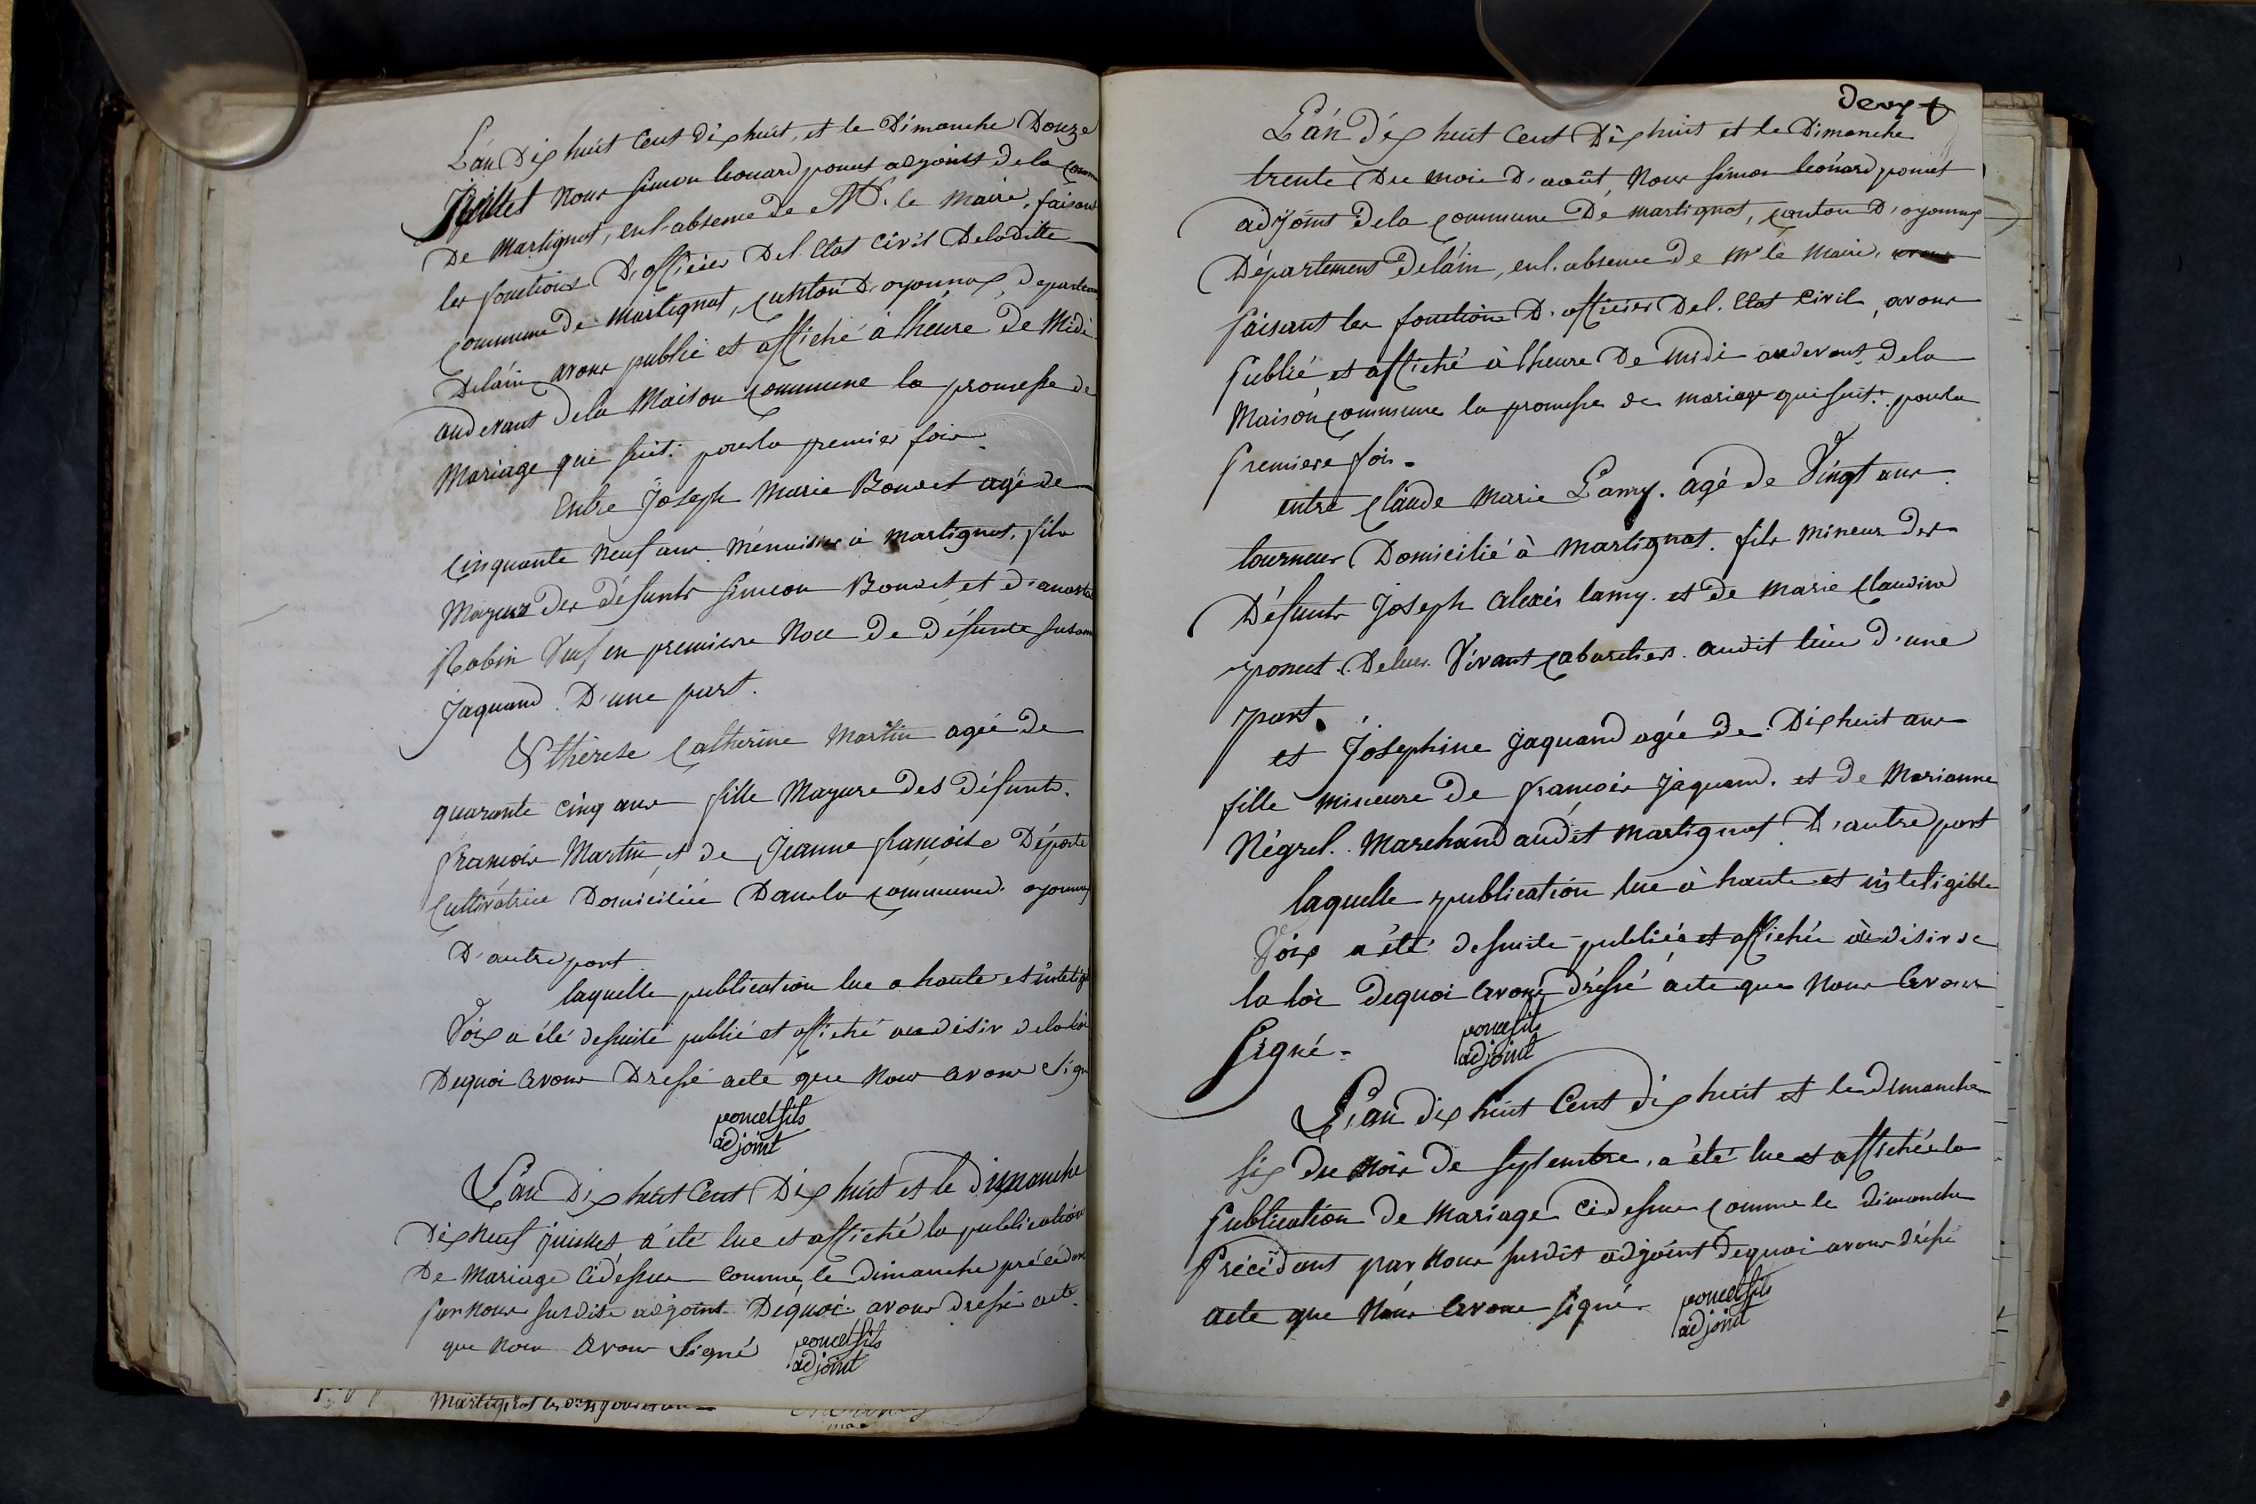 L'án Dix huit Cent dix huit, et le Dimanche Douze
Juillet Nous Simon Leonard poncet adjoint de la Comm
De Martignat, en l'absence de Mr. le Maire, faisant
les fonctions D'officier Del'Etat Civil Deladitte
Commune de Martignat, Canton D'oyonnax, Departem
Delain avons publié et affiché à lheure de Midi
audevant dela Maison Commune la promesse de
Mariage qui suit: pourla premier fois
Entre Joseph Marie Bouvet agé de
Cinquante Neuf ans Ménuisier à Martignat, fils
Mayeur des défunts Simeon Bouvet et d'
Robin Veuf en premiere Noce De Défunte
Jaquand D'une part.
& thérese Catherine Martin agée De
quarante cinq ans fille Mayure des Défunts.
François Martin et de Jeanne françoise
Cultivatrice Domiciliée Dans la Commune d'oyonnax
D'autre part
laquelle publication lue a haute et inteligi
Voix a été desuite publié et affiché au désir dela loi
Dequoi avons Dressé acte que nous avons Sign
poncet fils
adjoint
L'an Dix huit Cent Dix huit et le dimanche
Dix Neuf juillet a été lue et affiché la publication
De Mariage Cidessus comme le dimanche précédant
par nous susdit adjoint Déquoi avons dressé acte
que nous avons Signé poncet fils
adjoint
Martignat le
deux
L'án Dix huit Cent Dix huit et le Dimanche
trente Du mois D'août, Nous Simon leonard poncet
adjoint dela Commune De martignat, Canton D'oyonnax
Département Delain, en l'absence de mr le Maire,
faisant les fonctions D'officier Del'Etat Civil, avons
publié et affiché à lheure De midi audevant dela
Maison Commune la promesse de mariage qui suit: pourla
premiere fois.
entre Claude Marie Lamy. agé de Vingt ans
tourneur Domicilié à Martignat. fils Mineur des
Défunts Joseph alexis lamy. et de Marie Claudine
poncet. Vivant Cabaretiers audit lieu d'une
part.
et Joséphine jaquand agée de Dix huit ans
fille mineure de françois jaquand. et de Marianne
Négrel. Marchand audit Martignat D'autre part
laquelle publication lue à haute et inteligible
Voix a été desuite publiée et affichée au désir de
la loi dequoi avons dréssé acte que nous avons
Signé - poncet fils
adjoint
L'an dix huit Cent dix huit et le dimanche
six du mois de septembre, a été lue et affichée la
publication de Mariage cidessus comme le dimanche
précédant par nous susdit adjoint dequoi avons dréssé
acte que nous avons signé poncet fils
adjoint